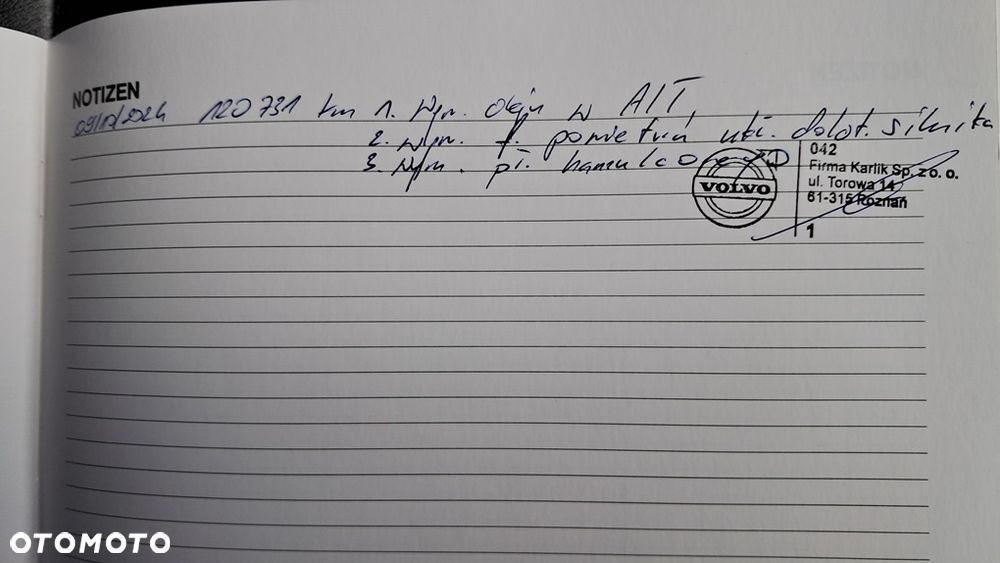 NOTIZEN
09/10/2024 120 731 km 1. Wym. oleju w A/T
2. wym. f. powietrza ukł. dolot. silnika
3. Wym. pł. hamulcowego
VOLVO
042
Firma Karlik Sp. z o. o.
ul. Torowa 14
61-315 Poznań
1
OTOMOTO